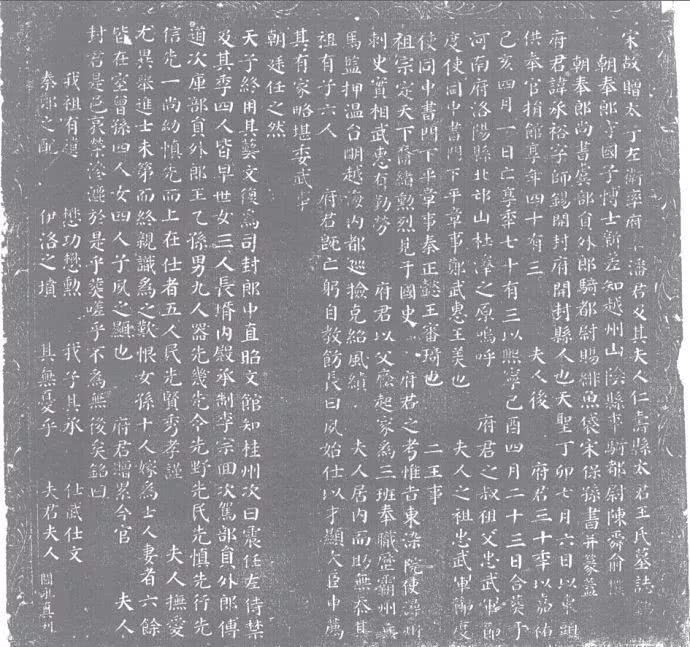 宋故贈太子左衛率府 潘君及其夫人仁壽縣太君王氏墓誌
朝奉郎守國子博士新差知越州山陰縣事騎都尉陳舜俞撰
朝奉郎尚書虞部員外郎騎都尉賜緋魚袋宋保孫書并篆蓋
府君諱承裕字師錫開封府開封縣人也天聖丁卯七月六日以東頭
供奉官捐館享年四十有三 夫人後 府君三十季以嘉祐
己亥四月一日亡享季七十有三以熙寧己酉四月二十三日合葬于
河南府洛陽縣北邙山杜澤之原嗚呼 府君之叔祖父忠武軍節
度使同中書門下平章事鄭武惠王美也 夫人之祖忠武軍節度
使同中書門下平章事秦正懿王審琦也 二王事
祖宗定天下爵緒勲烈見于國史 府君之考惟吉東染院使潯州
刺史實相武惠有勤勞 府君以父廕起家為三班奉職歷霸州兵
馬監押溫台明越海內都巡檢克紹風績 夫人居內而助無忝其
祖有子六人 府君既亡躬自教飭長曰夙始仕以才顯大臣中薦
其有家略堪委武事
朝廷任之然
天子終用其藝文復為司封郎中直昭文館知桂州次曰震任左侍禁
及其季四人皆早世女三人長壻內殿承制李宗回次駕部員外郎傅
道次庫部員外郎王乙孫男九人器先幾先令先野先民先慎先行先
信先一尚幼慎先而上在仕者五人民先賢秀孝謹 夫人撫愛
尤異舉進士未第而終親識為之歎恨女孫十人嫁為士人妻者六餘
皆在室曾孫四人女四人子夙之顯也 府君贈累今官 夫人
封君是邑哀榮渗漉於是乎葬嗟乎不為無後矣銘曰
我祖有適 懋功懋勲 我子其承 仕武仕文
秦鄭之配 伊洛之墳 其無憂乎 夫君夫人